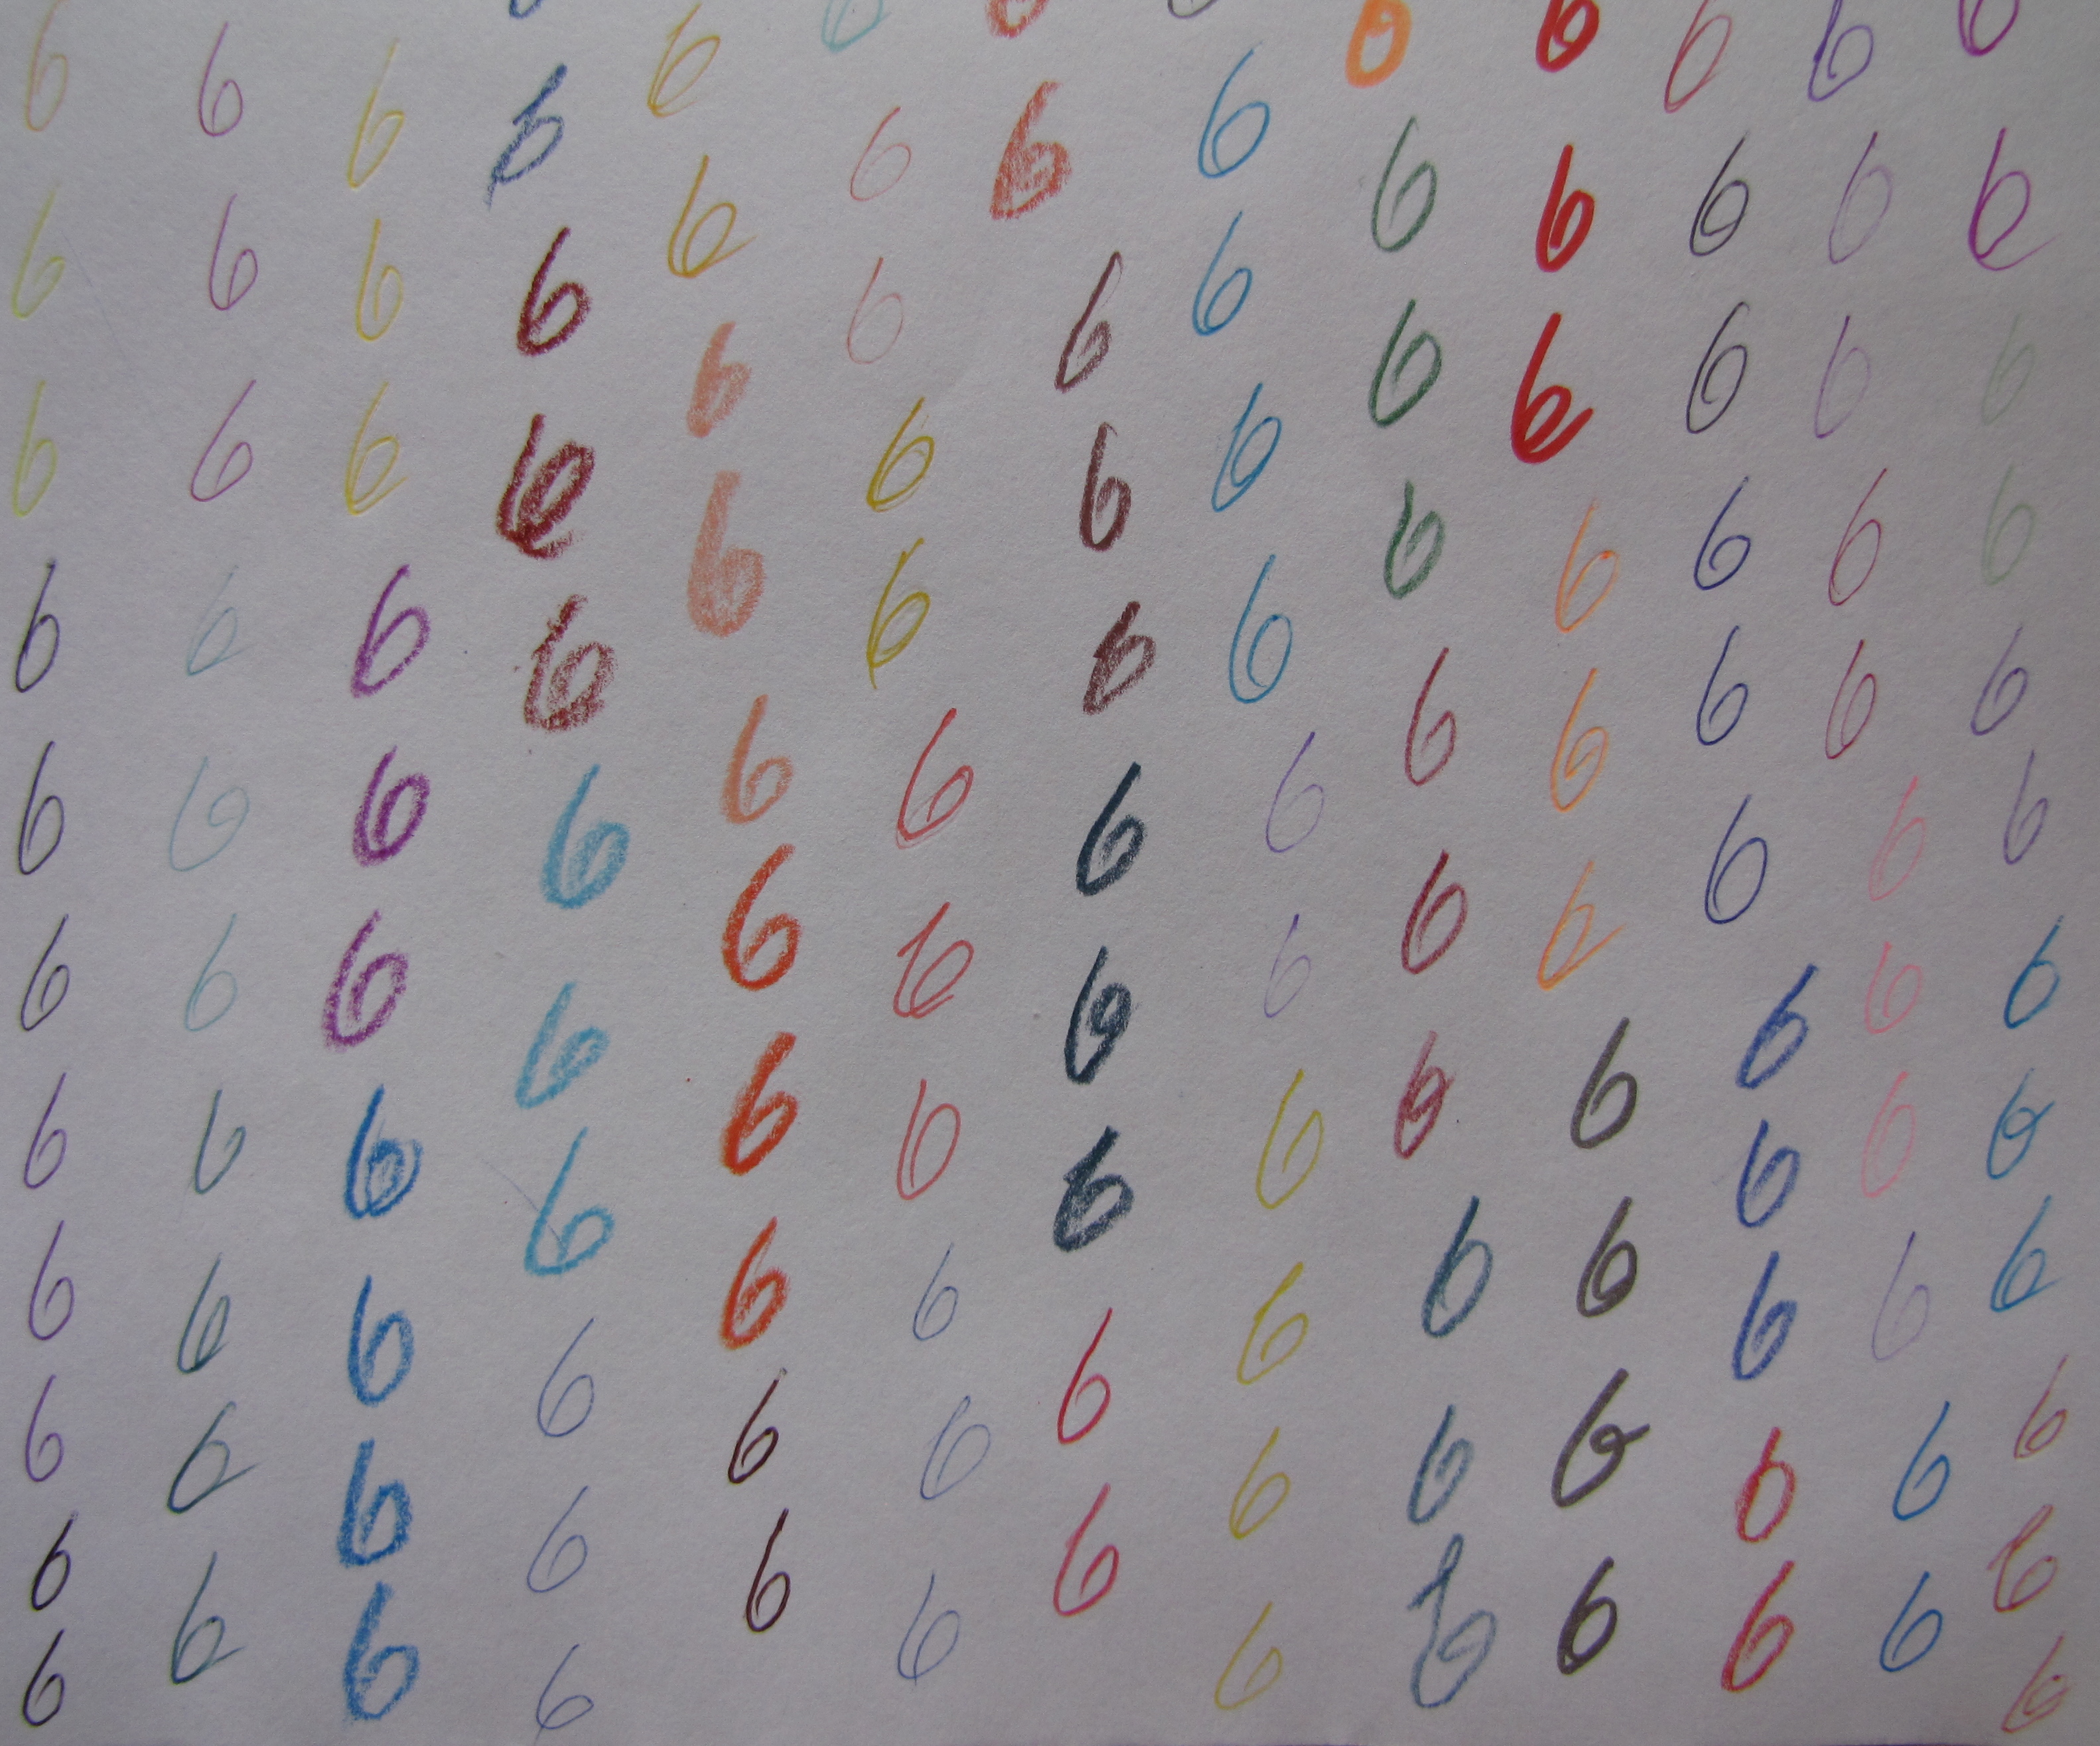 6 6 6 6 6 6 6 6 6 6 6 6 6
6 6 6 6 6 6 6 6 6 6 6 6 6
6 6 6 6 6 6 6 6 6 6 6 6 6
6 6 6 6 6 6 6 6 6 6 6 6 6
6 6 6 6 6 6 6 6 6 6 6 6 6
6 6 6 6 6 6 6 6 6 6 6 6 6
6 6 6 6 6 6 6 6 6 6 6 6 6
6 6 6 6 6 6 6 6 6 6 6 6 6
6 6 6 6 6 6 6 6 6 6 6 6 6
6 6 6 6 6 6 6 6 6 6 6 6
6 6 6 6
6